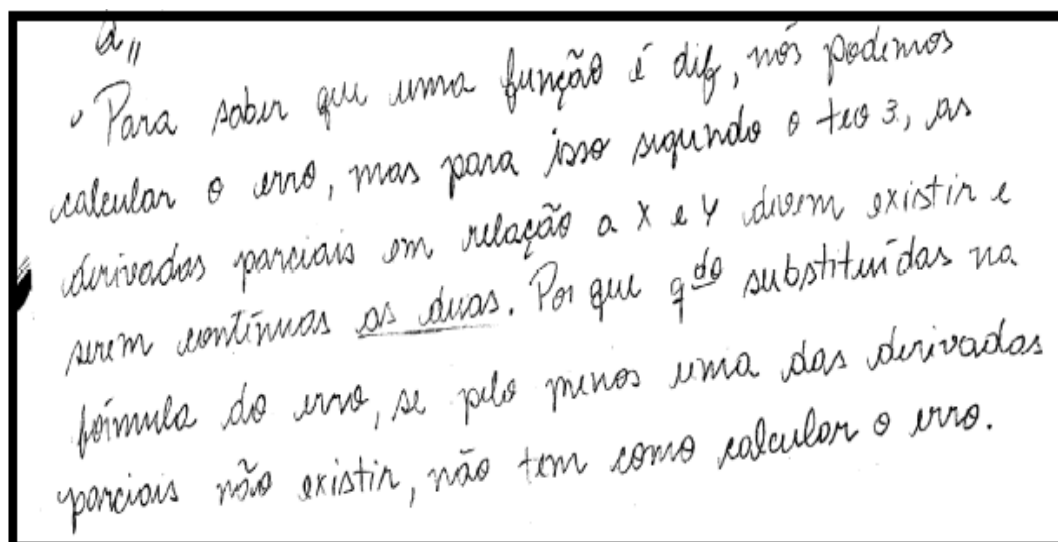 a,,
Para saber que uma função é dif, nós podemos
calcular o erro, mas para isso segundo o teo 3, as
derivadas parciais em relação a X e Y devem existir e
serem contínuas as duas. Por que qdo substituídas na
fórmula do erro, se pelo menos uma das derivadas
parciais não existir, não tem como calcular o erro.